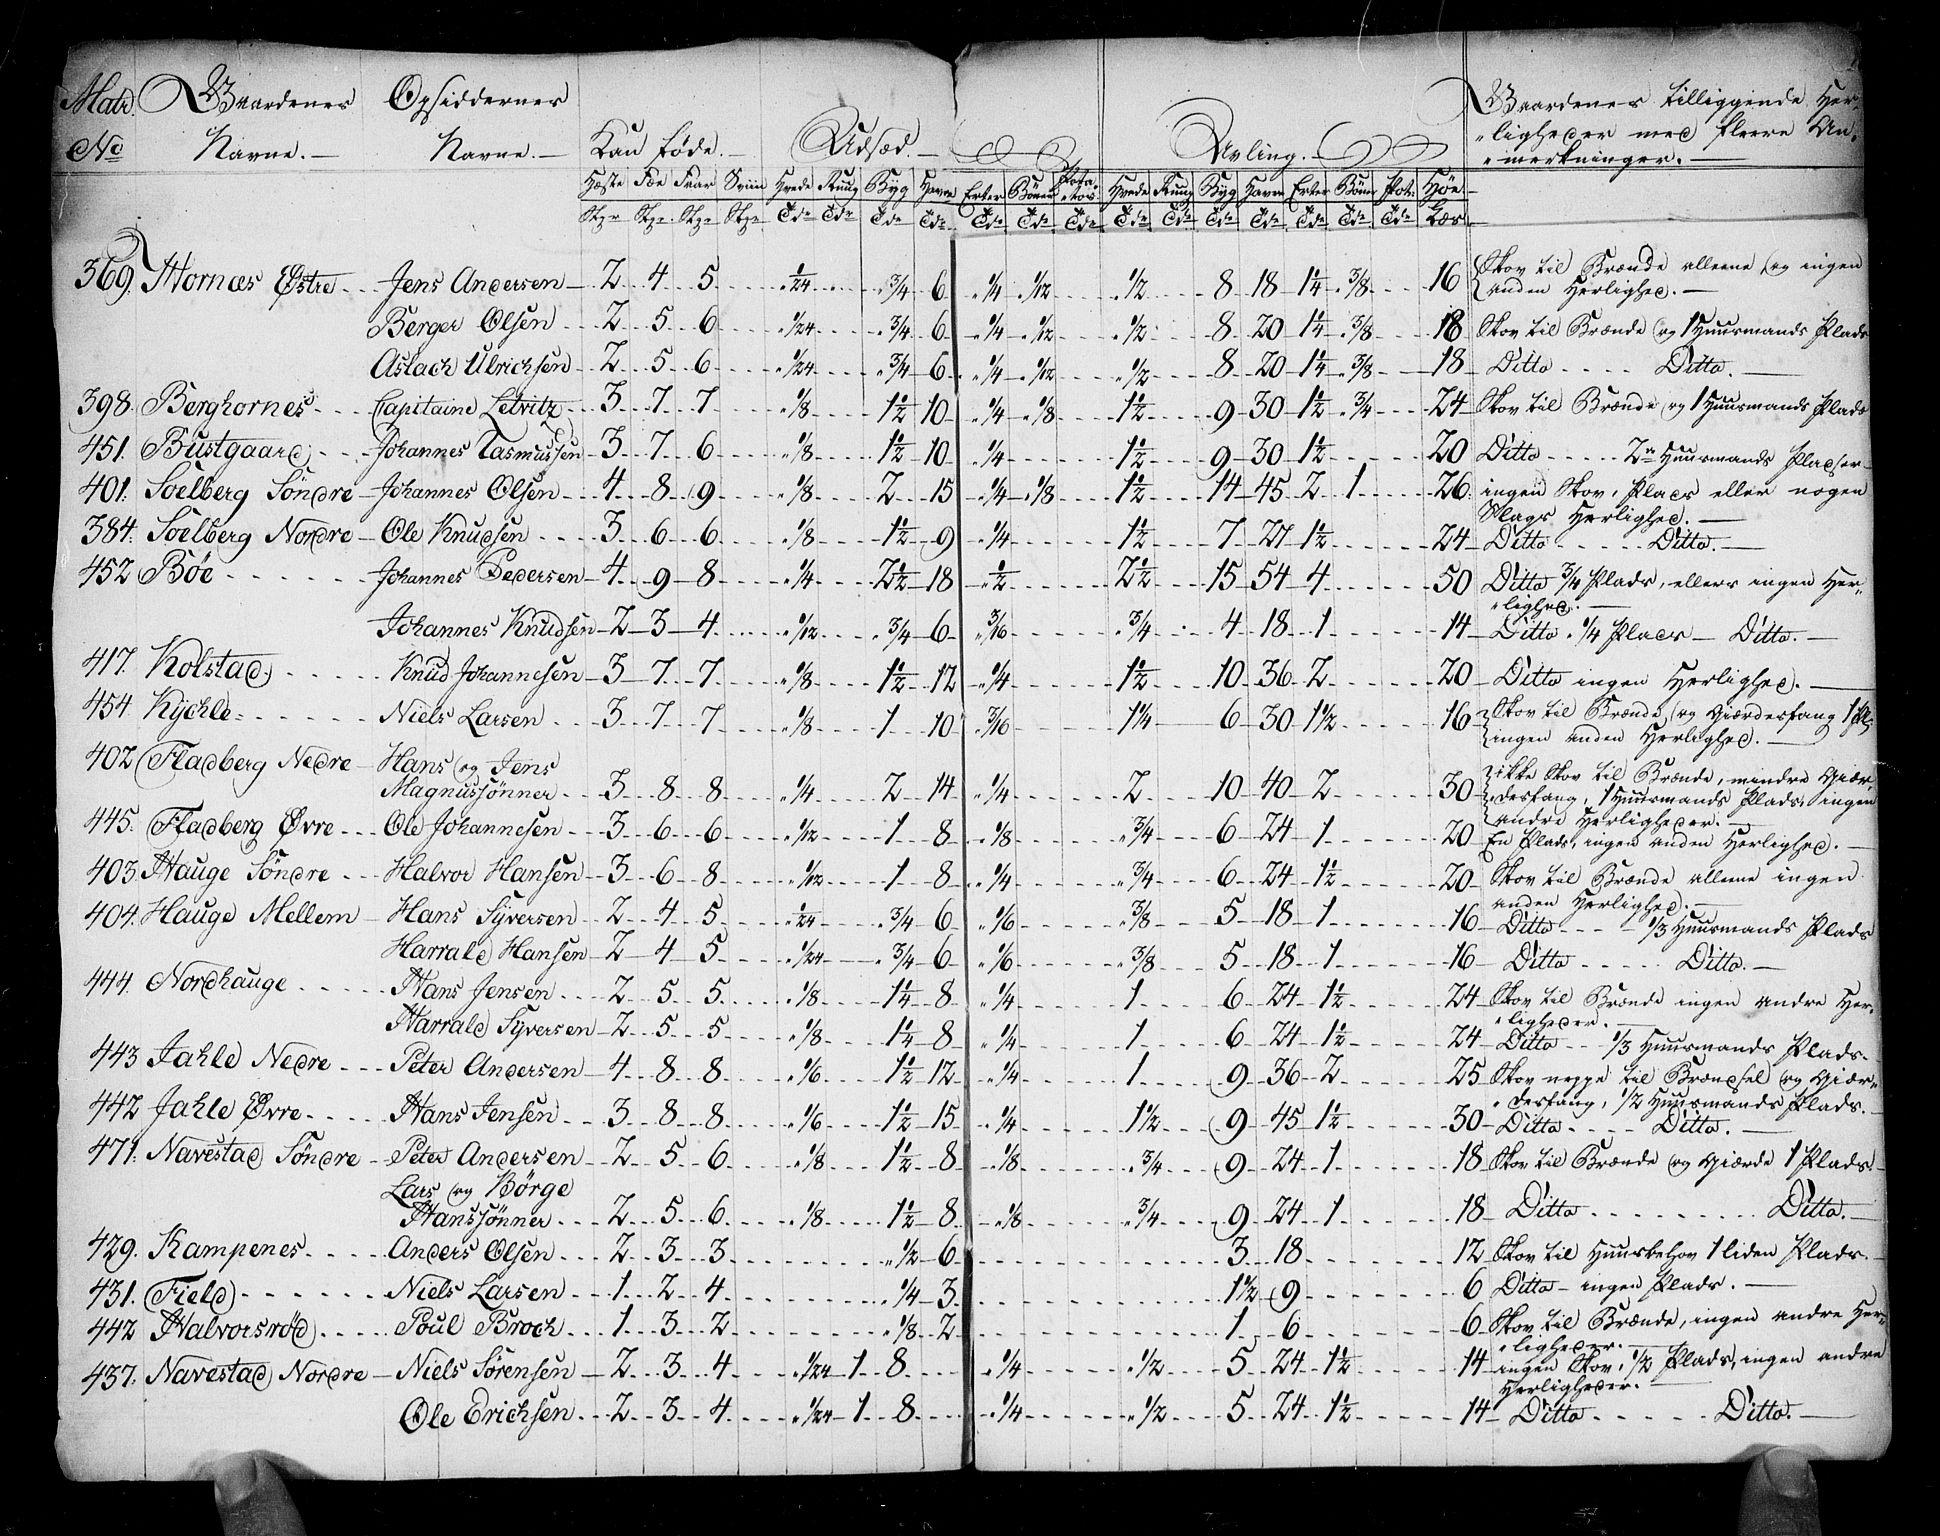 Matr. No Gaardenes Navne. Opsiddernes Navne. Kan føde. Udsæd. Avling. Gaardenes tilliggende Her-
ligheder med fleere An-
merkninger.
Hæste Fæe Faar Sviin Hvede Rug Byg Havre Erter Bönner Pota-tos Hvede Rug Byg Havre Erter Bönner Pot: Høe
Stkr Stkr Stkr Stkr Tdr Tdr Tdr Tdr Tdr Tdr Tdr Tdr Tdr Tdr Tdr Tdr Tdr Tdr Læs
369. Hornæs Østre Jens Andersen 2 4 5 " 1/24 " 3/4 6 " 1/4 " 1/12 " 1/2 8 18 1 1/4 " 3/8 16 Skov til Brænde alleene og ingen
anden Herlighed.
Berger Olsen 2 5 6 " 1/24 " 3/4 6 " 1/4 " 1/12 " 1/2 8 20 1 1/4 " 3/8 18 Skov til Brænde og 1 Huusmands Plads
Aslach Ulrichsen 2 5 6 " 1/24 " 3/4 6 " 1/4 " 1/12 " 1/2 8 20 1 1/4 " 3/8 18 Ditto Ditto.
398. Berghornes Capitaine Letvitz 3 7 7 " 1/8 1 1/2 10 " 1/4 " 1/8 1 1/2 9 30 1 1/2 " 3/4 24 Skov til Brænde og 1 Huusmands Plads
451. Bustgaard Johannes Rasmussen 3 7 6 " 1/8 1 1/2 10 " 1/4 1 1/2 9 30 1 1/2 20 Ditto 2de Huusmands Pladser
401. Soelberg Söndre Johannes Olsen 4 8 9 " 1/8 2 15 " 1/4 " 1/8 1 1/2 14 45 2 1 26 ingen Skov, Plads eller nogen
Slags Herlighed.
384. Soelberg Nordre Ole Knudsen 3 6 6 " 1/8 1 1/2 9 " 1/4 1 1/2 7 27 1 1/2 24 Ditto Ditto.
452 Böe Johannes Pedersen 4 9 8 " 1/4 2 1/2 18 " 1/2 2 1/2 15 54 4 50 Ditto 3/4 Plads, ellers ingen Her-
lighed.
Johannes Knudsen 2 3 4 " 1/12 " 3/4 6 " 3/16 " 3/4 4 18 1 14 Ditto " 1/4 Plads Ditto.
417. Kolstad Knud Johannesen 3 7 7 " 1/8 1 1/2 12 " 1/4 1 1/2 10 36 2 20 Ditto ingen Herlighed.
454. Kychle Niels Larsen 3 7 7 " 1/8 1 10 " 3/16 1 1/4 6 30 1 1/2 16 Skov til Brænde, og Giærdesfang 1 Pl:
ingen anden Herlighed.
402 Fladberg Nedre Hans og Jens
Magnussönner 3 8 8 " 1/4 2 14 " 1/4 2 10 40 2 30 ikke Skov til Brænde, mindre Giær-
desfang, 1 Huusmands Plads, ingen
andre Herligheder.
445. Fladberg Øvre Ole Johannesen 3 6 6 " 1/12 1 8 " 1/8 " 3/4 6 24 1 20 En Plads, ingen anden Herlighed.
403 Hauge Söndre Halvor Hansen 3 6 8 " 1/12 1 8 " 1/4 " 3/4 6 24 1 1/2 20 Skov til Brænde alleene ingen
anden Herlighed.
404. Hauge Mellem Hans Syversen 2 4 5 " 1/24 " 3/4 6 " 1/6 " 3/8 5 18 1 16 Ditto 1/3 Huusmands Plads
Harrald Hansen 2 4 5 " 1/24 " 3/4 6 " 1/6 " 3/8 5 18 1 16 Ditto Ditto.
444. Nordhauge Hans Jensen 2 5 5 " 1/8 1 1/4 8 " 1/4 1 6 24 1 1/2 24 Skov til Brænde ingen andre Her-
ligheder.
Harrald Syversen 2 5 5 " 1/8 1 1/4 8 " 1/4 1 6 24 1 1/2 24 Ditto 1/3 Huusmands Plads.
443 Jahle Nedre Peter Andersen 4 8 8 " 1/6 1 1/2 12 " 1/4 1 9 36 2 25 Skov neppe til Brændsel og Giær-
desfang, 1/2 Huusmands Plads.
442 Jahle Øvre Hans Jensen 3 8 8 " 1/6 1 1/2 15 " 1/4 1 1/2 9 45 1 1/2 30 Ditto Ditto.
471. Navestad Söndre Peter Andersen 2 5 6 " 1/8 1 1/2 8 " 1/8 " 3/4 9 24 1 18 Skov til Brænde og Giærde 1 Plads.
Lars og Börge
Hanssönner 2 5 6 " 1/8 1 1/2 8 " 1/8 " 3/4 9 24 1 18 Ditto Ditto.
429. Kampenes Anders Olsen 2 3 3 " 1/2 6 3 18 12 Skov til Huusbehov 1 liden Plads.
431. Field Niels Larsen 1 2 4 " 1/4 3 1 1/2 9 6 Ditto ingen Plads.
442 Halvorsröd Poul Broch 1 3 2 " 1/8 2 1 6 6 Skov til Brænde, ingen andre Her-
ligheder.
437. Navestad Nordre Niels Sörensen 2 3 4 " 1/24 1 8 " 1/4 " 1/2 5 24 1 1/2 14 ingen Skov, 1/2 Plads, ingen andre
Herligheder.
Ole Erichsen 2 3 4 " 1/24 1 8 " 1/4 " 1/2 5 24 1 1/2 14 Ditto Ditto.